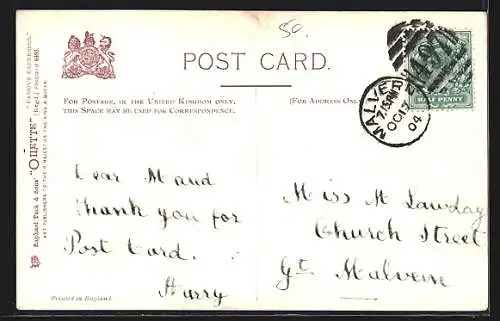 50.
POST CARD.
FOR POSTAGE, IN THE UNITED KINGDOM ONLY,
THIS SPACE MAY BE USED FOR CORRESPONDENCE.
(FOR ADDRESS ONLY
HALF PENNY
MALVERN
OC 17
04
Dear Maud
Thank you for
Post Card.
Harry
Miss M Lawday
Church Street
Gt. Malvern
Raphael Tuck & Sons' "OILETTE" [Regd.] Postcard
ART PUBLISHERS TO THEIR MAJESTIES THE KING & QUEEN.
Printed in England.